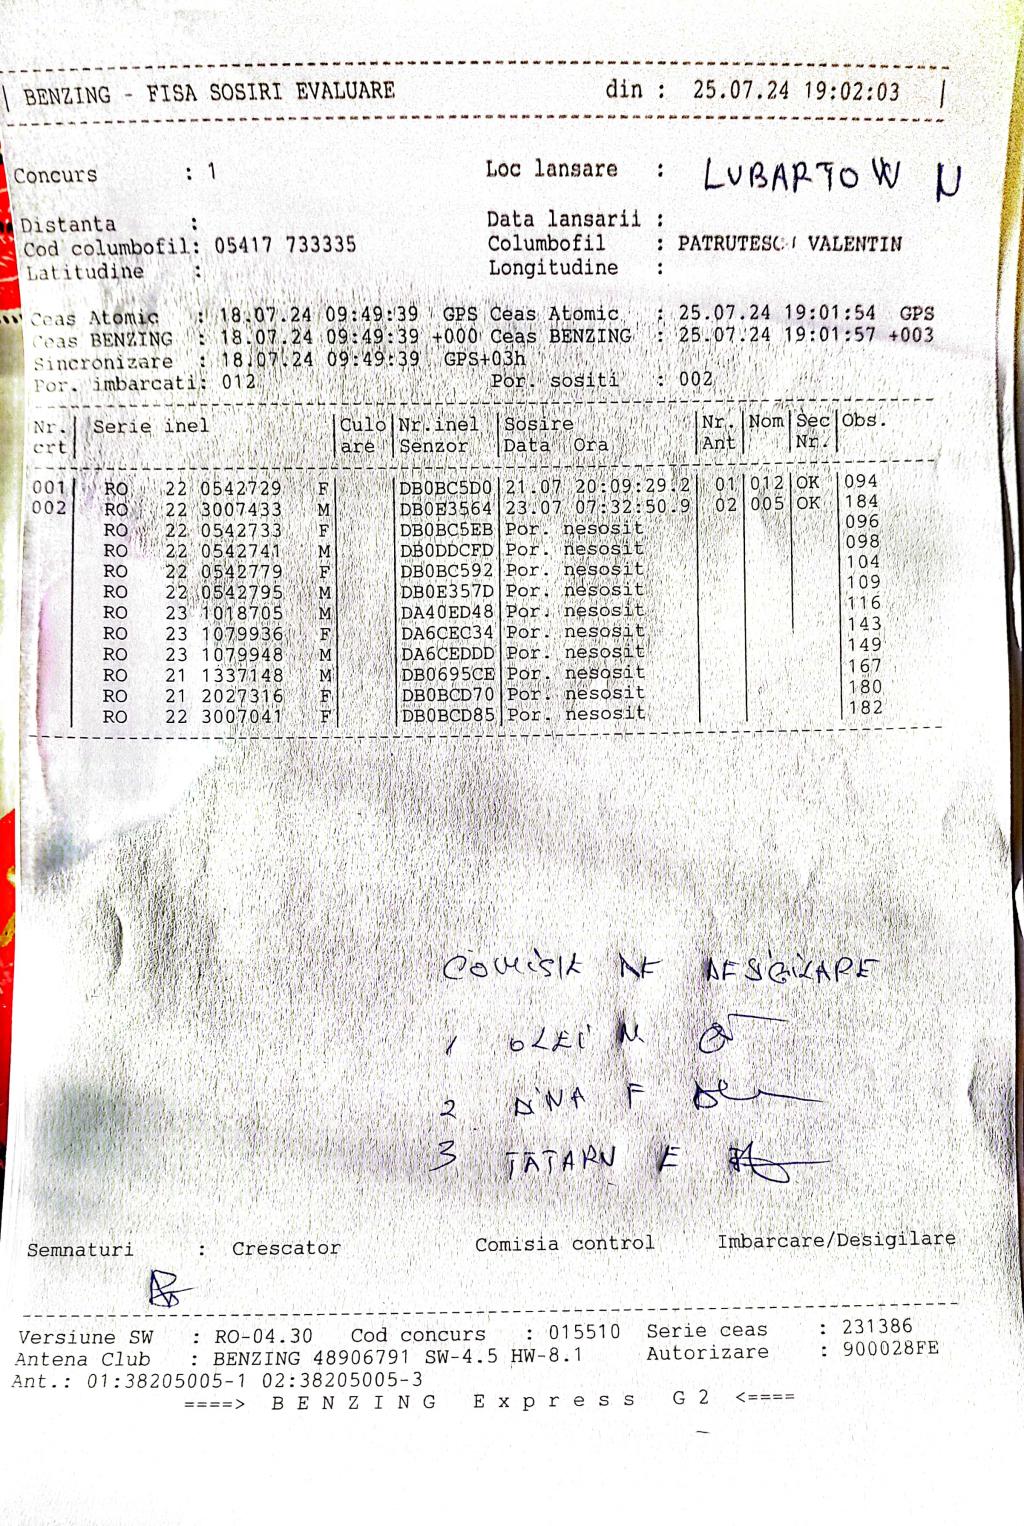 BENZING - FISA SOSIRI EVALUARE din : 25.07.24 19:02:03
Concurs : 1 Loc lansare : LUBARTOW N
Distanta : Data lansarii :
Cod columbofil: 05417 733335 Columbofil : PATRUTESCU VALENTIN
Latitudine : Longitudine :
Ceas Atomic : 18.07.24 09:49:39 GPS Ceas Atomic : 25.07.24 19:01:54 GPS
Ceas BENZING : 18.07.24 09:49:39 +000 Ceas BENZING : 25.07.24 19:01:57 +003
Sincronizare : 18.07.24 09:49:39 GPS+03h
Por. imbarcati: 012 Por. sositi : 002
Nr. Serie inel Culo Nr.inel Sosire Nr. Nom Sec Obs.
crt are Senzor Data Ora Ant Nr.
001 RO 22 0542729 F DB0BC5D0 21.07 20:09:29.2 01 012 OK 094
002 RO 22 3007433 M DB0E3564 23.07 07:32:50.9 02 005 OK 184
RO 22 0542733 F DB0BC5EB Por. nesosit 096
RO 22 0542741 M DB0DDCFD Por. nesosit 098
RO 22 0542779 F DB0BC592 Por. nesosit 104
RO 22 0542795 M DB0E357D Por. nesosit 109
RO 23 1018705 M DA40ED48 Por. nesosit 116
RO 23 1079936 F DA6CEC34 Por. nesosit 143
RO 23 1079948 M DA6CEDDD Por. nesosit 149
RO 21 1337148 M DB0695CE Por. nesosit 167
RO 21 2027316 F DB0BCD70 Por. nesosit 180
RO 22 3007041 F DB0BCD85 Por. nesosit 182
COMISIE DE DESIGILARE
1 OLEI M
2 DINA F
3 TATARU E
Semnaturi : Crescator Comisia control Imbarcare/Desigilare
Versiune SW : RO-04.30 Cod concurs : 015510 Serie ceas : 231386
Antena Club : BENZING 48906791 SW-4.5 HW-8.1 Autorizare : 900028FE
Ant.: 01:38205005-1 02:38205005-3
====> B E N Z I N G E x p r e s s G 2 <====